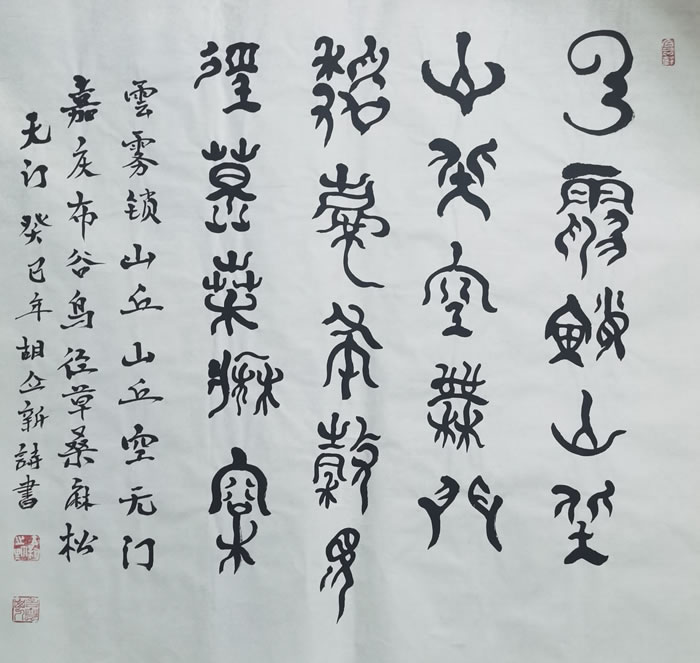 云霧鎖山丘
山丘空無門
嘉慶布穀鳥
徑草桑麻松
雲雾锁山丘山丘空无门
嘉庆布谷鸟径草桑麻松
无门 癸巳年胡立新詩書